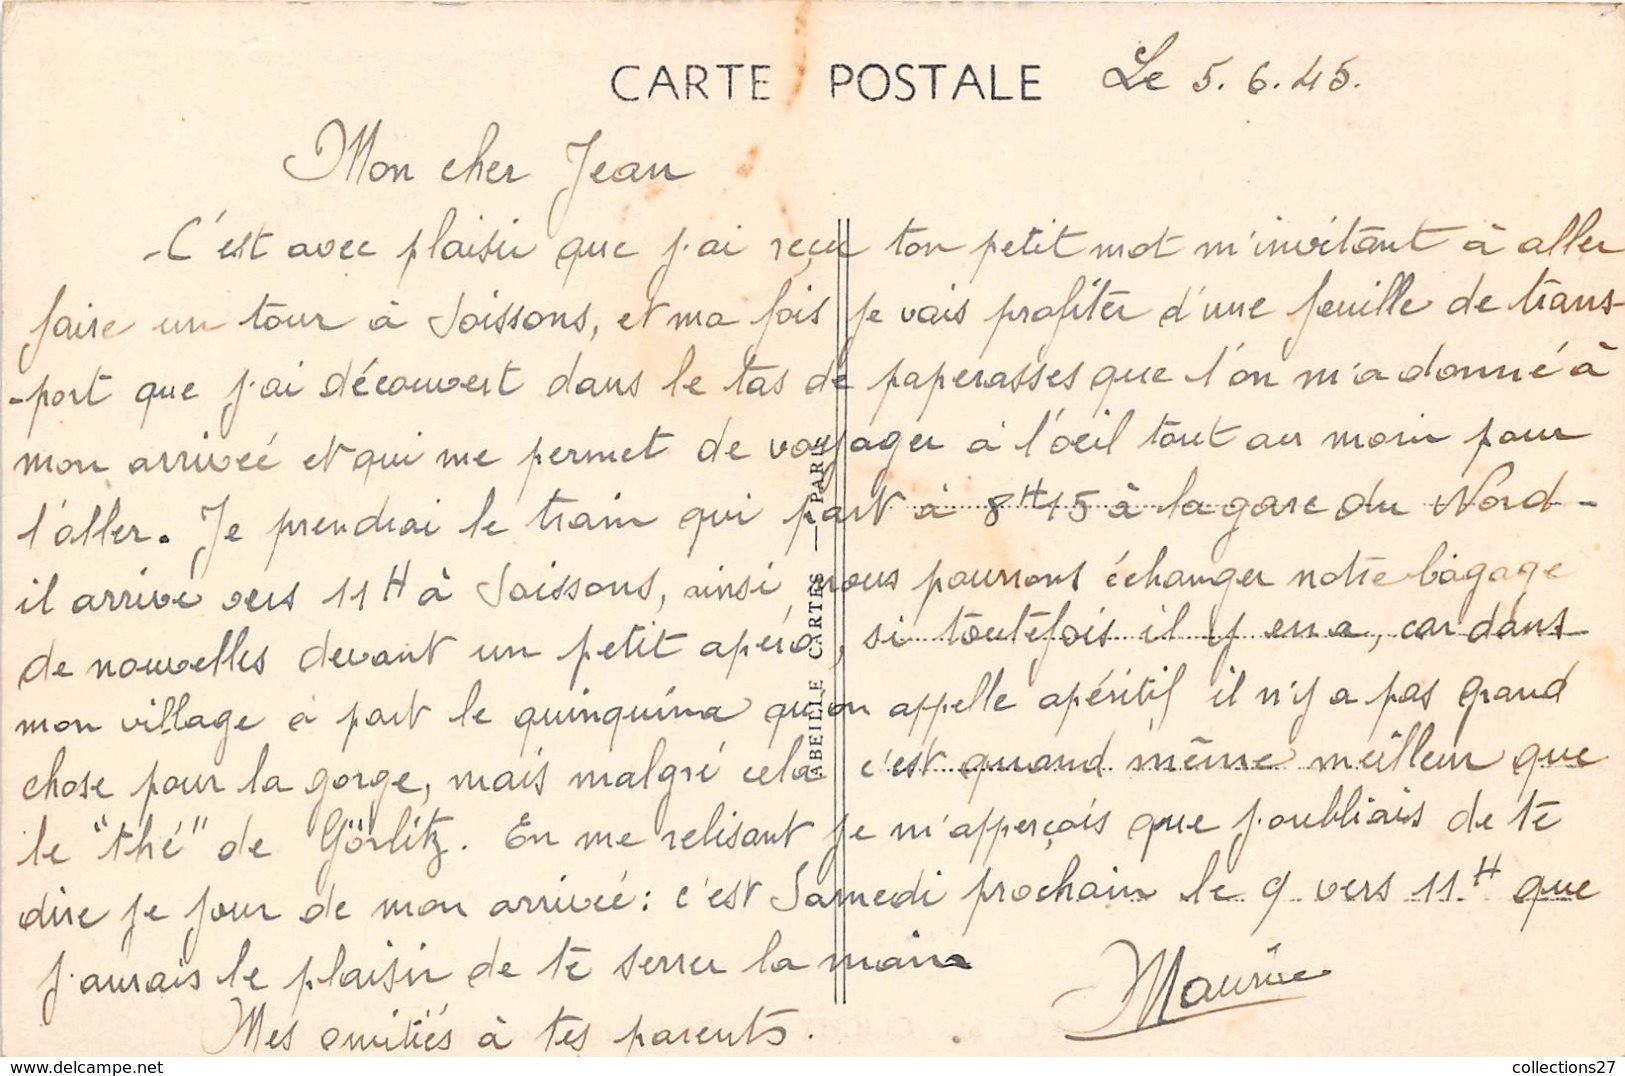 CARTE POSTALE Le 5.6.45.
Mon cher Jean
- C'est avec plaisir que j'ai reçu ton petit mot m'invitant à aller
faire un tour à Soissons, et ma fois je vais profiter d'une feuille de trans-
-port que j'ai découvert dans le tas de paperasses que l'on m'a donné à
mon arrivée et qui me permet de voyager à l'oeil tout au moin pour
l'aller. Je prendrai le train qui part à 8H15 à la gare du Nord -
il arrive vers 11H à Soissons, ainsi nous pourrons échanger notre bagage
de nouvelles devant un petit apéro, si toutefois il y en a, car dans
mon village à part le quinquina qu'on appelle apéritif il n'y a pas grand
chose pour la gorge, mais malgré cela c'est quand même meilleur que
le "thé" de Görlitz. En me relisant je m'apperçois que j'oubliais de te
dire je jour de mon arrivée : c'est Samedi prochain le 9 vers 11H que
j'aurais le plaisir de te serrer la main
Mes amitiés à tes parents.
Maurice
ABEILLE CARTES — PARIS
collections27